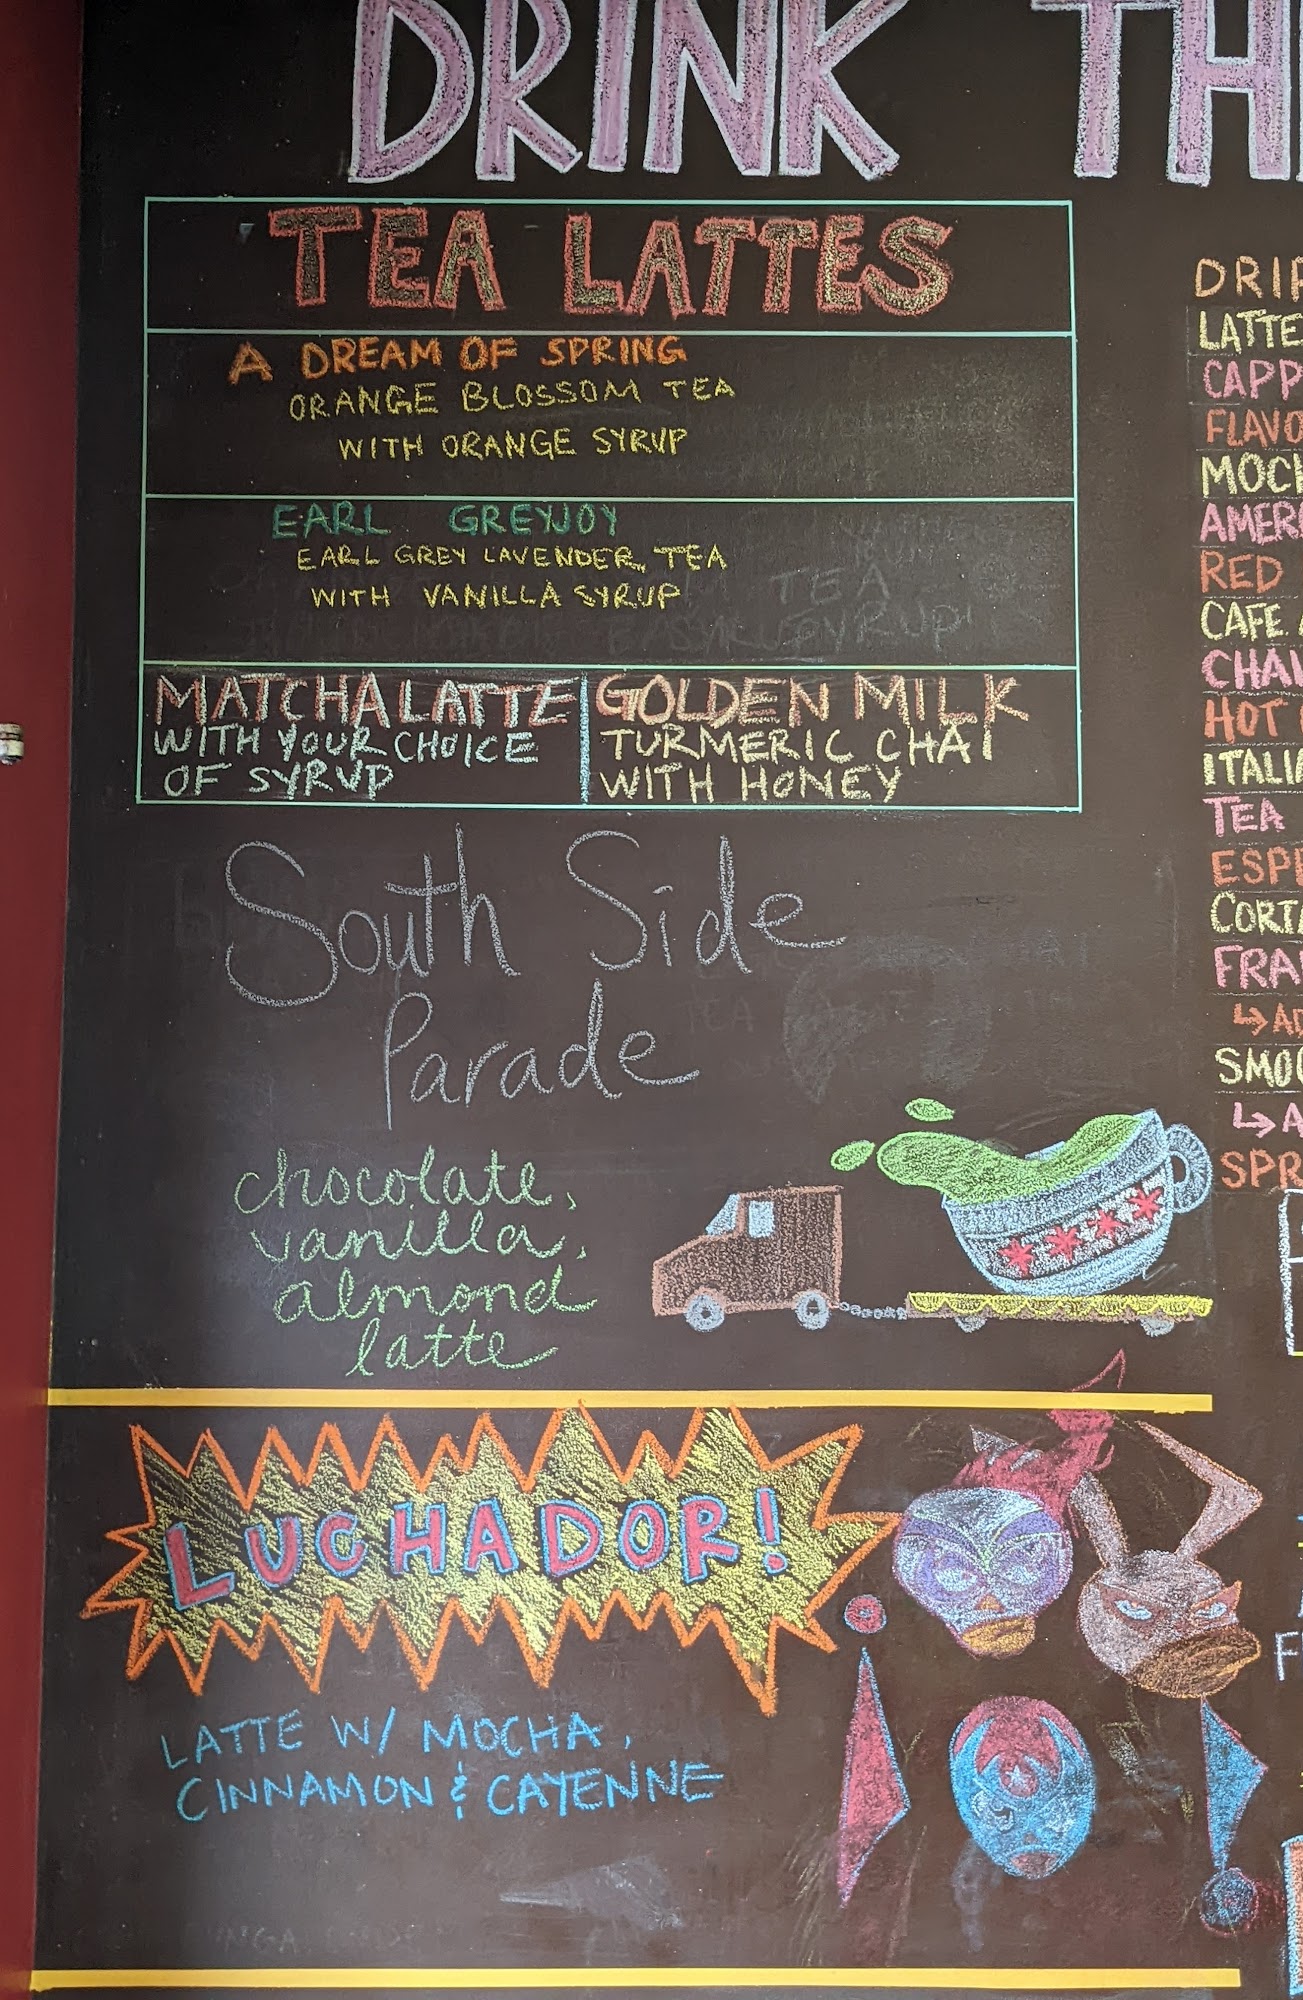 DRINK TH
TEA LATTES
A DREAM OF SPRING
ORANGE BLOSSOM TEA
WITH ORANGE SYRUP
EARL GREYJOY
EARL GREY LAVENDER TEA
WITH VANILLA SYRUP
MATCHA LATTE
WITH YOUR CHOICE
OF SYRUP
GOLDEN MILK
TURMERIC CHAI
WITH HONEY
South Side
Parade
chocolate,
vanilla,
almond
latte
LUCHADOR!
LATTE W/ MOCHA,
CINNAMON & CAYENNE
DRIP
LATTE
CAPP
FLAVO
MOCH
AMERI
RED
CAFE
CHAI
HOT
ITALIA
TEA
ESPR
CORTA
FRAP
↳ AD
SMOO
↳ A
SPR